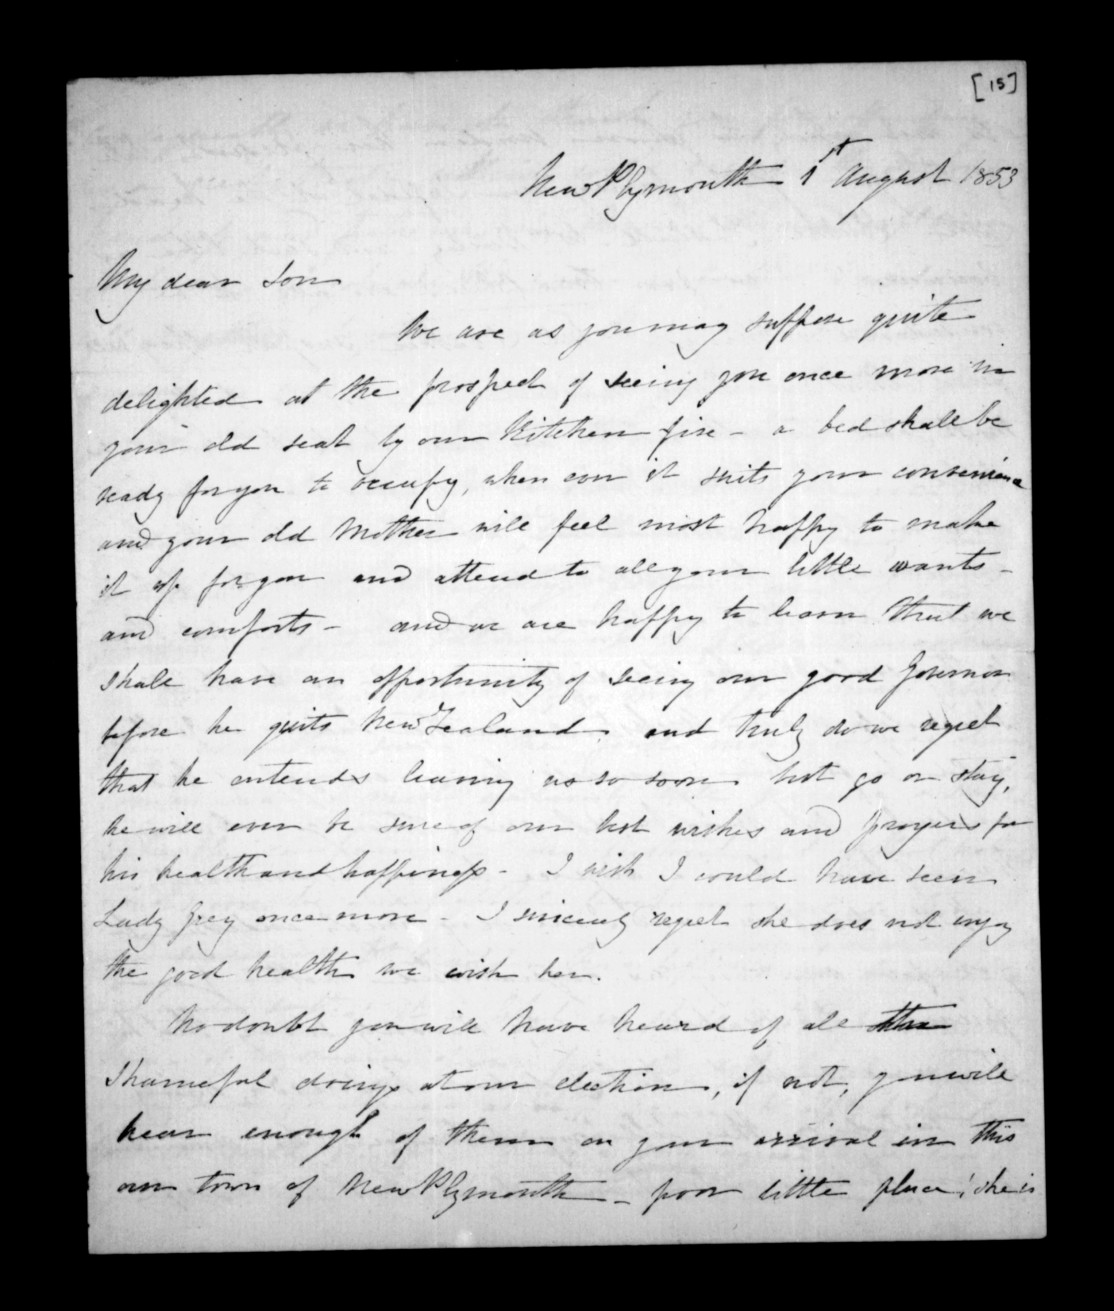 [15]
New Plymouth 1st August 1853
My dear Son
We are as you may suppose quite
delighted at the prospect of seeing you once more in
your old seat by our Kitchen fire - a bed shall be
ready for you to occupy, when ever it suits your convenience
and your old Mother will feel most happy to make
it up for you and attend to all your little wants -
and comforts - and we are happy to learn that we
shall have an opportunity of seeing our good Governor
before he quits New Zealand - and truly do we regret
that he intends leaving us so soon but go or stay,
he will ever be sure of our best wishes and prayers for
his health and happiness - I wish I could have seen
Lady Grey once more - I sincerely regret she does not enjoy
the good health we wish her.
No doubt you will have heard of all
shameful doings at our election, if not, you will
hear enough of them on your arrival in this
our town of New Plymouth - poor little place! she is